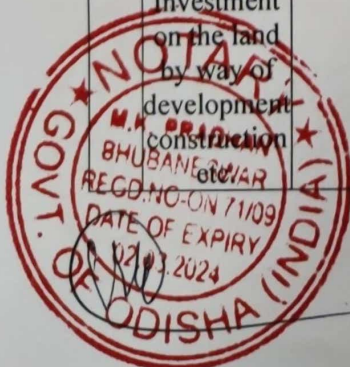 Investment
on the land
by way of
development
construction
etc.
★ NOTARY ★
GOVT. OF ODISHA (INDIA)
M.K PRADHAN
BHUBANESWAR
REGD.NO-ON 71/09
DATE OF EXPIRY
02.03.2024